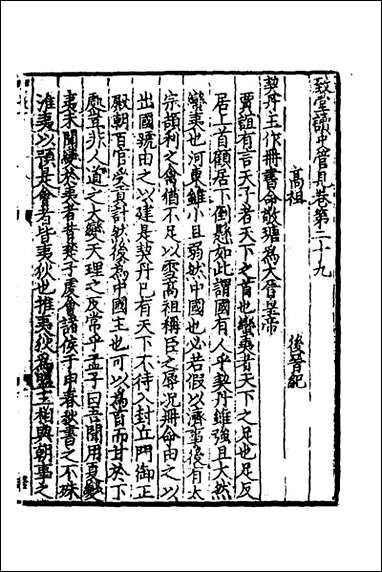 致堂讀史管見卷第二十九
高祖　後晉紀
契丹主作冊書命敬瑭為大晉皇帝
賈誼有言天子者天下之首也蠻夷者天下之足也足反
居上首顧居下倒懸如此謂國有人乎契丹雖強且大然
蠻夷也河東雖小且弱然中國也必若假以濟事後有太
宗頡利之會猶不足以雪高祖稱臣之辱況冊命由之以
出國號由之以建是契丹已有天下不待入封丘門御正
殿朝百官受貢計然後為中國主也可以為首而甘於下
處豈非人道之大變天理之反常乎孟子曰吾聞用夏變
夷未聞變於夷者昔楚子虔會諸侯于申春秋書之不殊
淮夷以預是會者皆夷狄也推夷狄為盟主相與朝事之